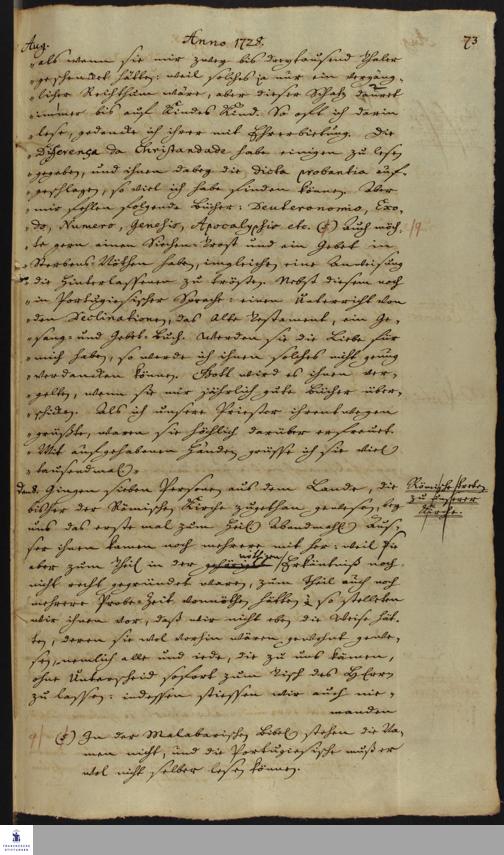 Aug. Anno 1728. 73
"als wenn sie mir zwey bis dreytausend Thaler
"geschencket hätten: weil solches ja nur ein vergäng-
"licher Reichthum wäre, aber dieser Schatz dauret
"immer bis auf Kindes Kind. So oft ich darin
"lese, gedencke ich ihrer mit Ehrerbietung. Die
"Differença da Christandade habe einigen zu lesen
"gegeben, und ihnen dabey die dicta probantia auf-
"geschlagen, so viel ich habe finden können. Von
"mir fehlen folgende Bücher: Deuteronomio, Exo-
"do, Numero, Genesis, Apocalypsis etc. (*) Auch möch-
"te gern einen Seelen-Trost und ein Gebet in
"Sterbens-Nöthen haben, imgleichen eine Anweisung
"die Hinterlassenen zu trösten. Nebst diesem noch
"in Portugiesischer Sprache: einen Unterricht von
"den Declinationen, das Alte Testament, ein Ge-
"sang- und Gebet-Buch. Werden sie die Liebe für
"mich haben, so werde ich ihnen solches nicht genug
"verdancken können. Gott wird es ihnen ver-
"gelten, wenn sie mir jährlich gute Bücher über-
"schicken. Als ich unsere Priester ihrentwegen
"grüßte, waren sie höchlich darüber erfreuet.
"Mit aufgehabenen Händen grüsse ich sie viel
"tausendmal."
Gingen sieben Personen aus dem Lande, die
bisher der Römischen Kirche zugethan gewesen, bey
uns das erste mal zum Heil. Abendmahl. Aus-
ser ihnen kamen noch mehrere mit her: weil sie
aber zum Theil in der nöthigen Erkäntniß noch
nicht recht gegründet waren, zum Theil auch noch
mehrere Probe-Zeit vonnöthen hätten; so stelleten
wir ihnen vor, daß wir nicht eben die Weise hät-
ten, deren sie wol vorhin wären gewohnt gewe-
sen, nemlich alle und iede, die zu uns kämen,
ohne Unterscheid sofort zum Tisch des HErrn
zu lassen: indessen stiessen wir auch nie-
manden
Römische
zu unserer
Kirche.
(*) In der Malabarischen Bibel stehen die Na-
men nicht, und die Portugiesische muß er
wol nicht selber lesen können.
FRANCKESCHE
STIFTUNGEN